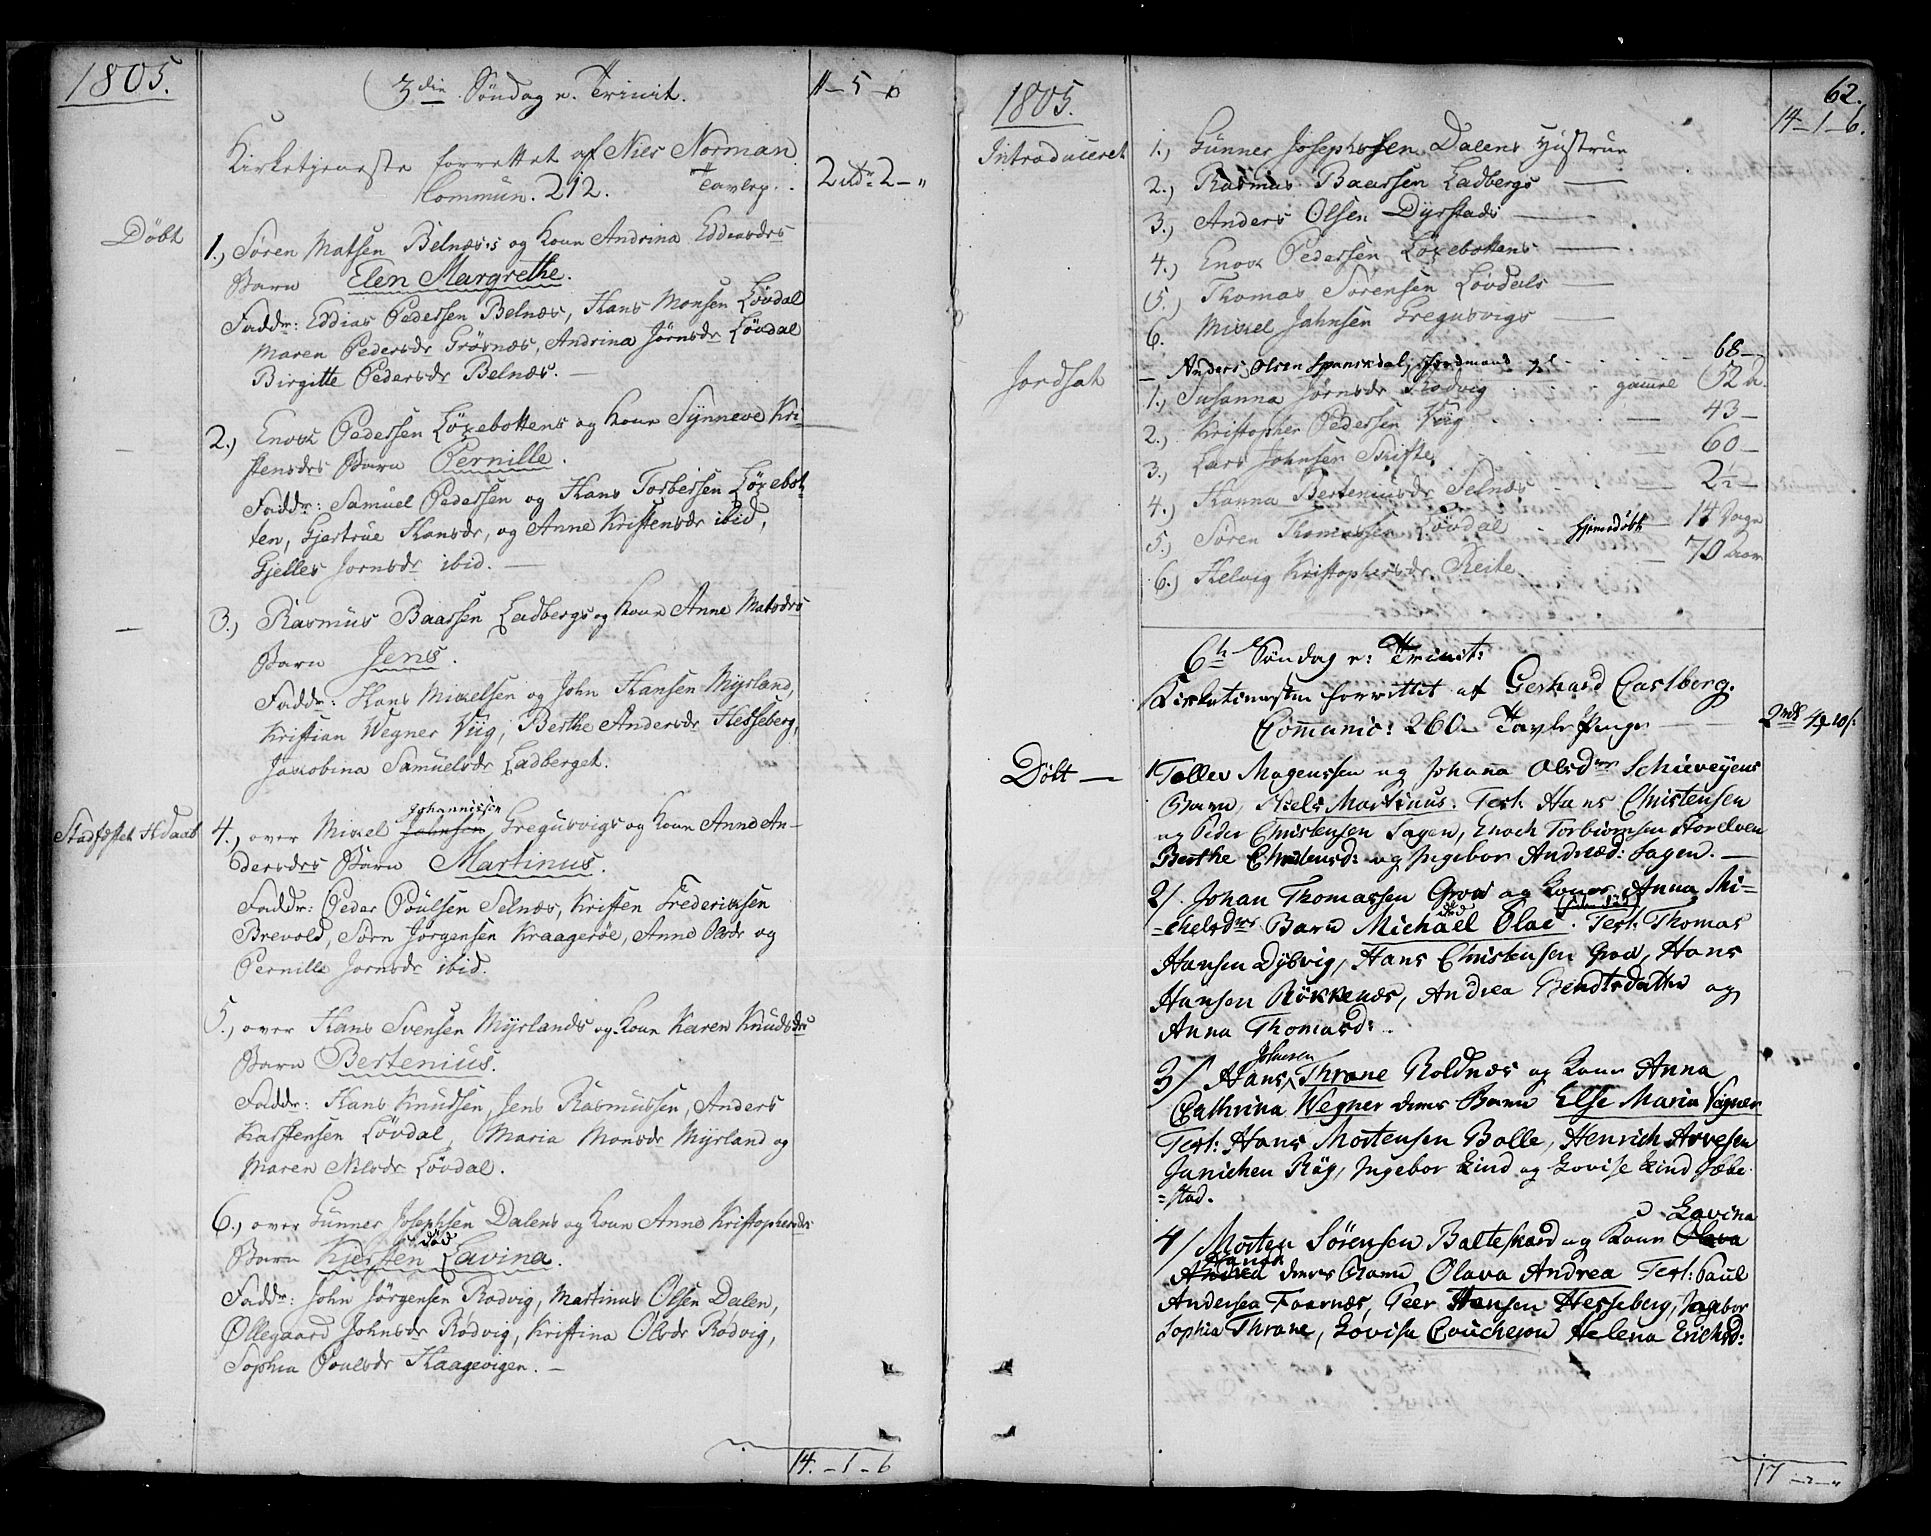 1805.
3die Söndag e. Trinit.
11-5-10
Kirketjeneste forrettet af Niels Norman.
Commun. 212. Tavlep.. 2 rdr 2-"
Döbt
1., Sören Matsen Belnæs's og Kone Andrina Eddiasdrs
Barn Elen Margrethe.
Faddr: Eddias Pedersen Belnæs, Hans Monsen Lövdal
Maren Pedersdr Grösnæs, Andrina Jörnsdr Lövdal
Birgitte Pedersdr Belnæs. —
2., Enock Pedersen Löxebottens og Kone Synneve Kri-
stensdrs Barn Pernille.
Faddr: Samuel Pedersen og Hans Torbersen Löxebot-
ten, Gjertrue Hansdr, og Anne Kristensdr ibid,
Gjelles Jornsdr ibid. —
3., Rasmus Baarsen Ladbergs og Kone Anne Matsdrs
Barn Jens.
Faddr: Hans Mikelsen og John Hansen Myrland,
Kristian Wegner Viig, Berthe Andersdr Hesseberg,
Jakobina Samuelsdr Ladberget.
Stadfæstet H.Daab
4., over Mikel Johannissen Johnsen Gregusvigs og Kone Anne An-
dersdrs Barn Martinus.
Faddr: Peder Poulsen Selnæs, Kristen Frederiksen
Brevold, Sörn Jörgensen Kraageröe, Anne Olsdr og
Pernille Jornsdr ibid.
5., over Hans Svensen Myrlands og Kone Karen Knudsdrs
Barn Bertenius.
Faddr: Hans Knudsen, Jens Rasmussen, Anders
Karstensen Lövdal, Maria Monsdr Myrland og
Maren Nilsdr Lövdal.
6., over Gunner Josephsen Dalens og Kone Anne Kristophersdr
Barn Kjersten Lavina. död
Faddr: John Jörgensen Rodvig, Martinus Olsen Dalen,
Øllegaard Johnsdr Rodvig, Kristina Olsdr Rodvig,
Sophia Poulsdr Kaagevigen. —
14.-1-6
62.
1805.
14-1-6.
Introduceret
1., Gunner Josephsen Dalens Hustrue
2., Rasmus Baarsen Ladbergs —
3., Anders Olsen Dyrstads —
4., Enok Pedersen Löxebottens —
5., Thomas Sörensen Lövdals —
6. Mikel Jahnsen Gregusvigs —
Jordsat
— Anders Olsen Spansdal, 68-
1., Susanna Jörnsdr Rodvig gammel 52 A.
2., Kristopher Pedersen Viig — 43-
3., Lars Johnsen Skifte — 60-
4., Hanna Berteniusdr Selnæs — 2½-
5., Sören Thomassen Lövdal hjemedöbt 14 Dage
6., Helvig Kristophersdr Reite 70 Aar
6te Söndag e: Trinit:
Kirketienesten forrettet af Gerhard Carlberg.
Communic: 260. Tavle Penge 2 rdr
Döbt —
1 Tollev Mogenssen og Johanna Olsdrs Schieveyens
Barn, Niels Martinus: Test: Hans Christensen
og Peder Christensen Sagen, Enoch Torbiornsen Storelven
Berthe Christensd: og Ingebor Andreæd: Sagen. —
2/. Johan Thomassen Grov og Kones Anna Mi-
=chelsdrs Barn Michael Olae. död Test: Thomas
Hansen Dybvig, Hans Christensen Grov, Hans
Hansen Rökkenæs, Andrea Bendtsdatter og
Anna Thomasd: .
3/ Hans Johnsen Throne Roldnæs og Kone Anna
Cathrina Wegner deres Barn Else Maria Vagner
Test: Hans Mortensen Balle, Henrich Arvesen
Janichen Røg, Ingebor Kind og Lovise Kind Sæbe
=stad.
4/ Morten Sörensen Balteskard og Kone Olava Lavina
Andrea Hansd deres Barn Olava Andrea Test: Paul
Andersen Foarnæs, Peer Hansen Hesseberg, Ingebor
Sophia Throne, Lovisa Coucheson Helena Erichsd:
17 -2-"